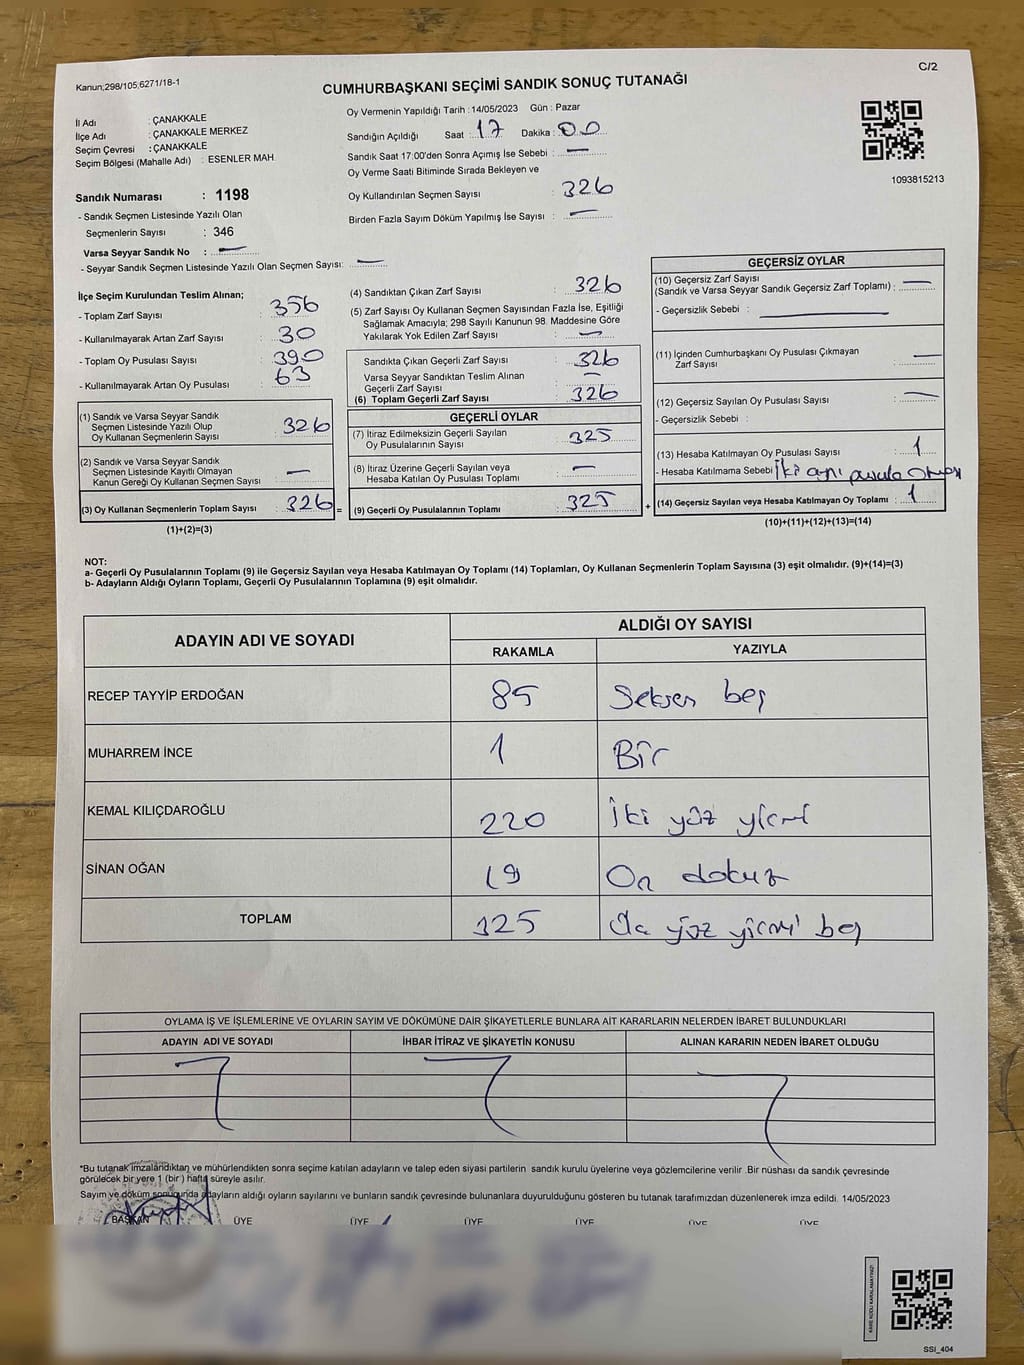 C/2
Kanun;298/105;6271/18-1
CUMHURBAŞKANI SEÇİMİ SANDIK SONUÇ TUTANAĞI
İl Adı : ÇANAKKALE
İlçe Adı : ÇANAKKALE MERKEZ
Seçim Çevresi : ÇANAKKALE
Seçim Bölgesi (Mahalle Adı) : ESENLER MAH.
Sandık Numarası : 1198
- Sandık Seçmen Listesinde Yazılı Olan
Seçmenlerin Sayısı : 346
Varsa Seyyar Sandık No : —
- Seyyar Sandık Seçmen Listesinde Yazılı Olan Seçmen Sayısı: —
Oy Vermenin Yapıldığı Tarih : 14/05/2023 Gün : Pazar
Sandığın Açıldığı Saat : 17 Dakika : 00
Sandık Saat 17:00'den Sonra Açımış İse Sebebi : —
Oy Verme Saati Bitiminde Sırada Bekleyen ve
Oy Kullandırılan Seçmen Sayısı : 326
Birden Fazla Sayım Döküm Yapılmış İse Sayısı : —
1093815213
İlçe Seçim Kurulundan Teslim Alınan;
- Toplam Zarf Sayısı : 356
- Kullanılmayarak Artan Zarf Sayısı : 30
- Toplam Oy Pusulası Sayısı : 390
- Kullanılmayarak Artan Oy Pusulası : 63
(1) Sandık ve Varsa Seyyar Sandık
Seçmen Listesinde Yazılı Olup
Oy Kullanan Seçmenlerin Sayısı : 326
(2) Sandık ve Varsa Seyyar Sandık
Seçmen Listesinde Kayıtlı Olmayan
Kanun Gereği Oy Kullanan Seçmen Sayısı : —
(3) Oy Kullanan Seçmenlerin Toplam Sayısı : 326 =
(1)+(2)=(3)
(4) Sandıktan Çıkan Zarf Sayısı : 326
(5) Zarf Sayısı Oy Kullanan Seçmen Sayısından Fazla İse, Eşitliği
Sağlamak Amacıyla; 298 Sayılı Kanunun 98. Maddesine Göre
Yakılarak Yok Edilen Zarf Sayısı : —
Sandıkta Çıkan Geçerli Zarf Sayısı : 326
Varsa Seyyar Sandıktan Teslim Alınan
Geçerli Zarf Sayısı : —
(6) Toplam Geçerli Zarf Sayısı : 326
GEÇERLİ OYLAR
(7) İtiraz Edilmeksizin Geçerli Sayılan
Oy Pusulalarının Sayısı : 325
(8) İtiraz Üzerine Geçerli Sayılan veya
Hesaba Katılan Oy Pusulası Toplamı : —
(9) Geçerli Oy Pusulalarının Toplamı : 325 +
GEÇERSİZ OYLAR
(10) Geçersiz Zarf Sayısı
(Sandık ve Varsa Seyyar Sandık Geçersiz Zarf Toplamı) : —
- Geçersizlik Sebebi : —
(11) İçinden Cumhurbaşkanı Oy Pusulası Çıkmayan
Zarf Sayısı : —
(12) Geçersiz Sayılan Oy Pusulası Sayısı : —
- Geçersizlik Sebebi :
(13) Hesaba Katılmayan Oy Pusulası Sayısı : 1
- Hesaba Katılmama Sebebi : İki ayrı pusula
(14) Geçersiz Sayılan veya Hesaba Katılmayan Oy Toplamı : 1
(10)+(11)+(12)+(13)=(14)
NOT:
a- Geçerli Oy Pusulalarının Toplamı (9) ile Geçersiz Sayılan veya Hesaba Katılmayan Oy Toplamı (14) Toplamları, Oy Kullanan Seçmenlerin Toplam Sayısına (3) eşit olmalıdır. (9)+(14)=(3)
b- Adayların Aldığı Oyların Toplamı, Geçerli Oy Pusulalarının Toplamına (9) eşit olmalıdır.
ADAYIN ADI VE SOYADI ALDIĞI OY SAYISI
RAKAMLA YAZIYLA
RECEP TAYYİP ERDOĞAN 85 Seksen beş
MUHARREM İNCE 1 Bir
KEMAL KILIÇDAROĞLU 220 İki yüz yirmi
SİNAN OĞAN 19 On dokuz
TOPLAM 325 yüz yirmi beş
OYLAMA İŞ VE İŞLEMLERİNE VE OYLARIN SAYIM VE DÖKÜMÜNE DAİR ŞİKAYETLERLE BUNLARA AİT KARARLARIN NELERDEN İBARET BULUNDUKLARI
ADAYIN ADI VE SOYADI İHBAR İTİRAZ VE ŞİKAYETİN KONUSU ALINAN KARARIN NEDEN İBARET OLDUĞU
*Bu tutanak imzalandıktan ve mühürlendikten sonra seçime katılan adayların ve talep eden siyasi partilerin sandık kurulu üyelerine veya gözlemcilerine verilir .Bir nüshası da sandık çevresinde
görülecek bir yere 1 (bir ) hafta süreyle asılır.
Sayım ve döküm sonucunda adayların aldığı oyların sayılarını ve bunların sandık çevresinde bulunanlara duyurulduğunu gösteren bu tutanak tarafımızdan düzenlenerek imza edildi. 14/05/2023
BAŞKAN ÜYE ÜYE ÜYE ÜYE ÜYE ÜYE
SSİ_404